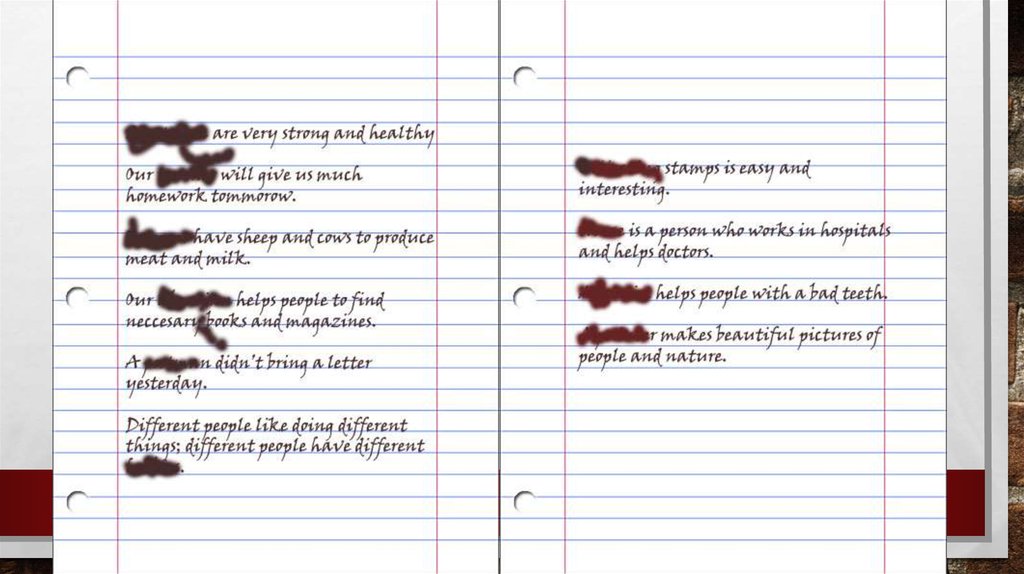 are very strong and healthy
Our will give us much
homework tommorow.
have sheep and cows to produce
meat and milk.
Our helps people to find
neccesary books and magazines.
A didn't bring a letter
yesterday.
Different people like doing different
things; different people have different
.
stamps is easy and
interesting.
is a person who works in hospitals
and helps doctors.
helps people with a bad teeth.
makes beautiful pictures of
people and nature.